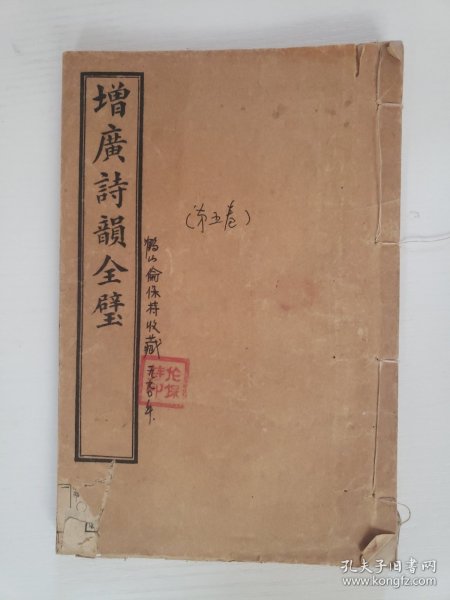 增廣詩韻全璧
（第五卷）
鶴山俞保梓收藏
孔夫子旧书网
www.kongfz.com